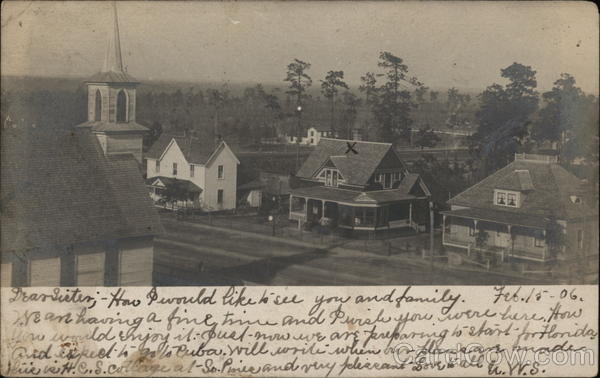 Dear Sister,- How I would like to see you and family. Feb. 15-06.
We are having a fine time and I wish you were here. How
you would enjoy it. Just now we are preparing to start for Florida
and expect to go to Cuba, will write when we
is H.C.S. cottage at So. Pines and very pleasant Love to all
CardCow.com
CardCow.com